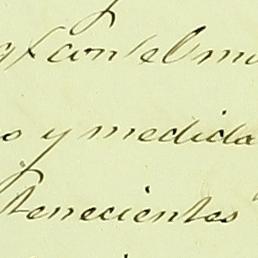 con el mi
o y medida
tenecientes